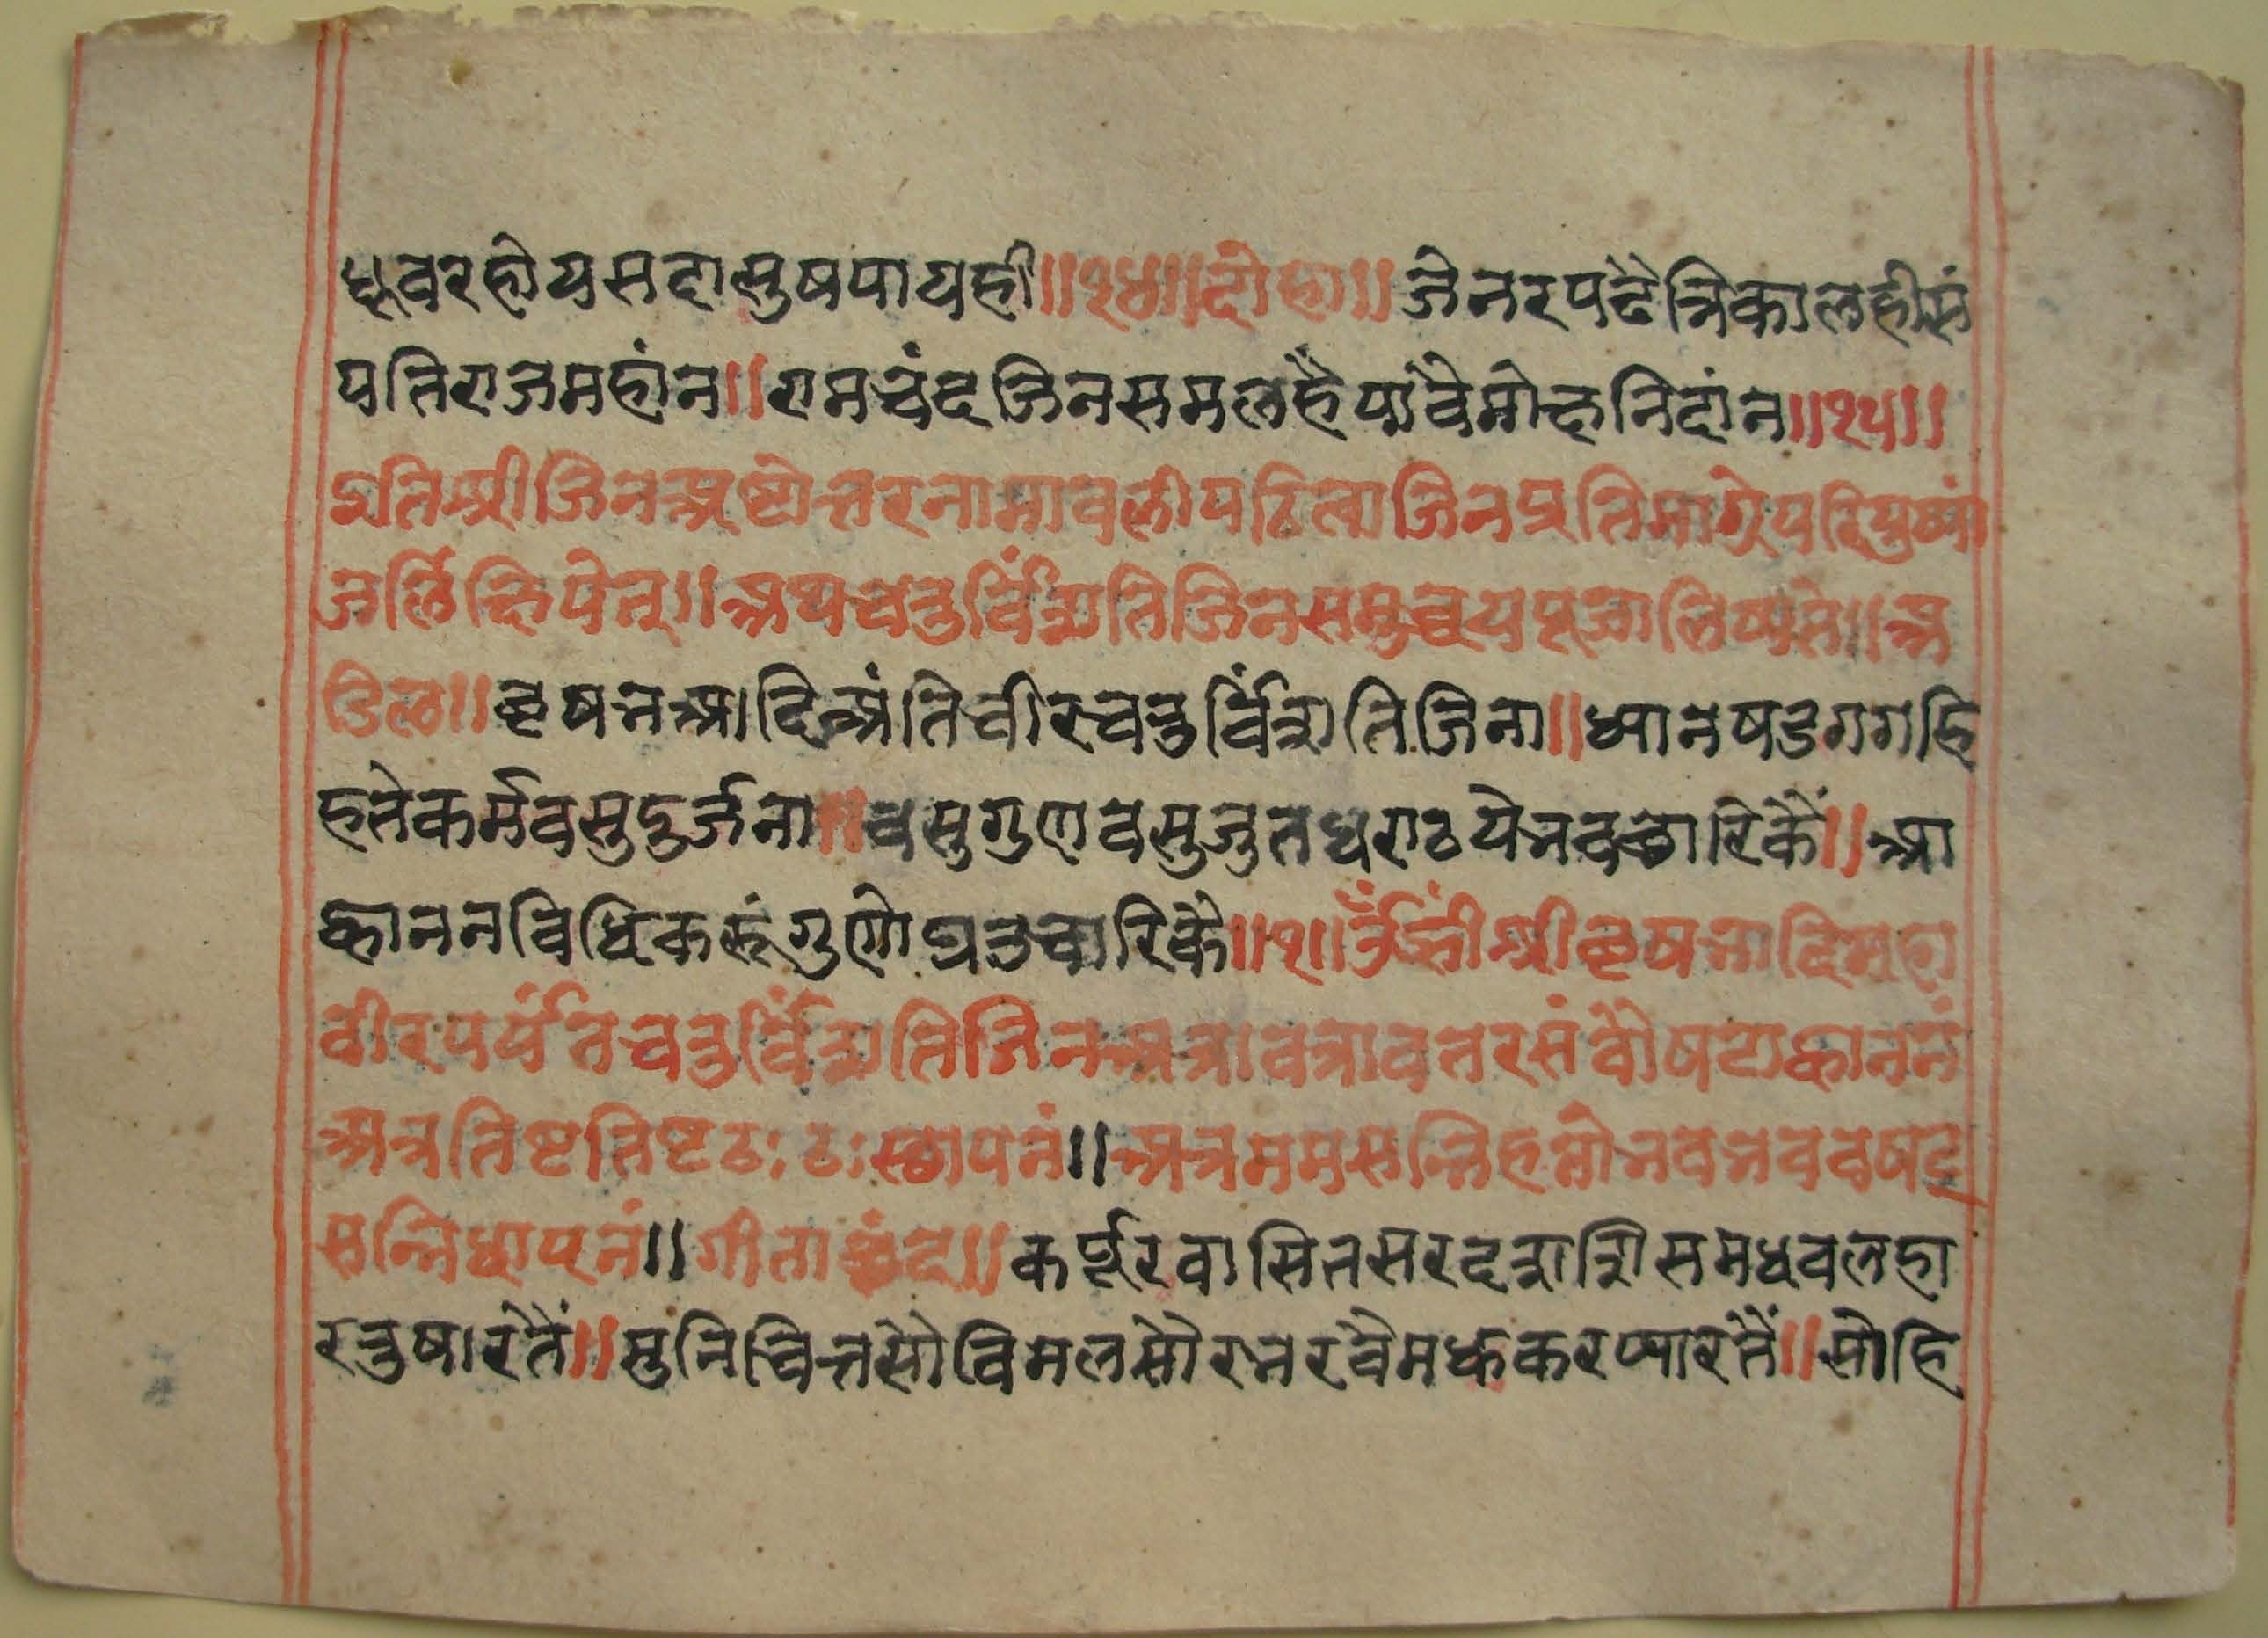 ध्रूवरहोयसदासुषपायही॥१४॥दोहा॥जेनरपढैत्रिकालहीसं
पतिराजमहांन॥रामचंदजिनसमलहैपावैमोक्षनिदांन॥१५॥
इतिश्रीजिनअष्टोत्तरनामावलीपठित्वाजिनप्रतिमाग्रेपरिपुष्पां
जलिंक्षिपेत्॥अथचतुर्विंशतिजिनसमुच्चयपूजालिष्यते॥अ
डिल॥वृषभआदिअंतिवीरचतुर्विंशतिजिना॥ध्यानषडगगहि
हतेकर्मवसुदुर्जना॥वसुगुणवसुजुतधराठयेभवछारिकैं॥आ
ह्वाननविधिकरूंगुणोघउचारिकै॥१॥ॐह्रींश्रीवृषभादिमहा
वीरपर्यंतचतुर्विंशतिजिनअत्रावत्रावतरसंवौषटाह्वाननं
अत्रतिष्टतिष्टठःठःस्छापनं॥अत्रममसन्निहतोभवभववषट्
सन्निधापनं॥गीताछंद॥कर्पूरवासितसरदशशिसमधवलहा
रतुषारतैं॥मुनिचित्तसोविमलसौरभरवैमधुकरप्यारतैं॥सोहि